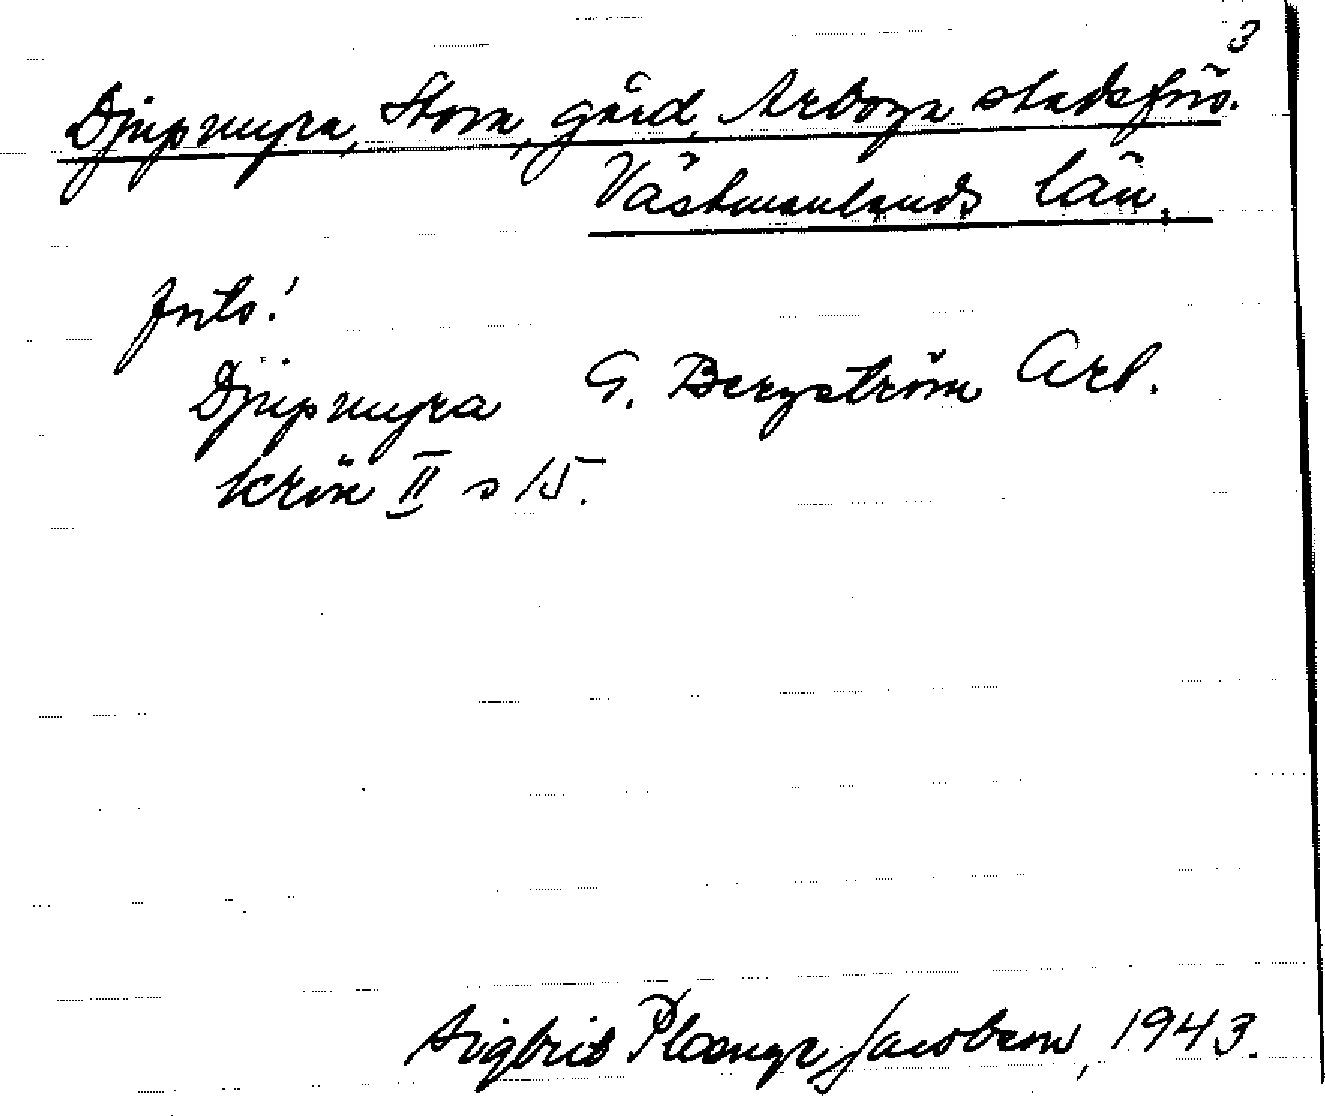 3
Djupmyra, Stora, gård, Arboga stadsförs.
Västmanlands län.
forts!
Djupmyra G. Bergström Arb.
krön II s 15.
Sigbrit Plænge Jacobson, 1943.